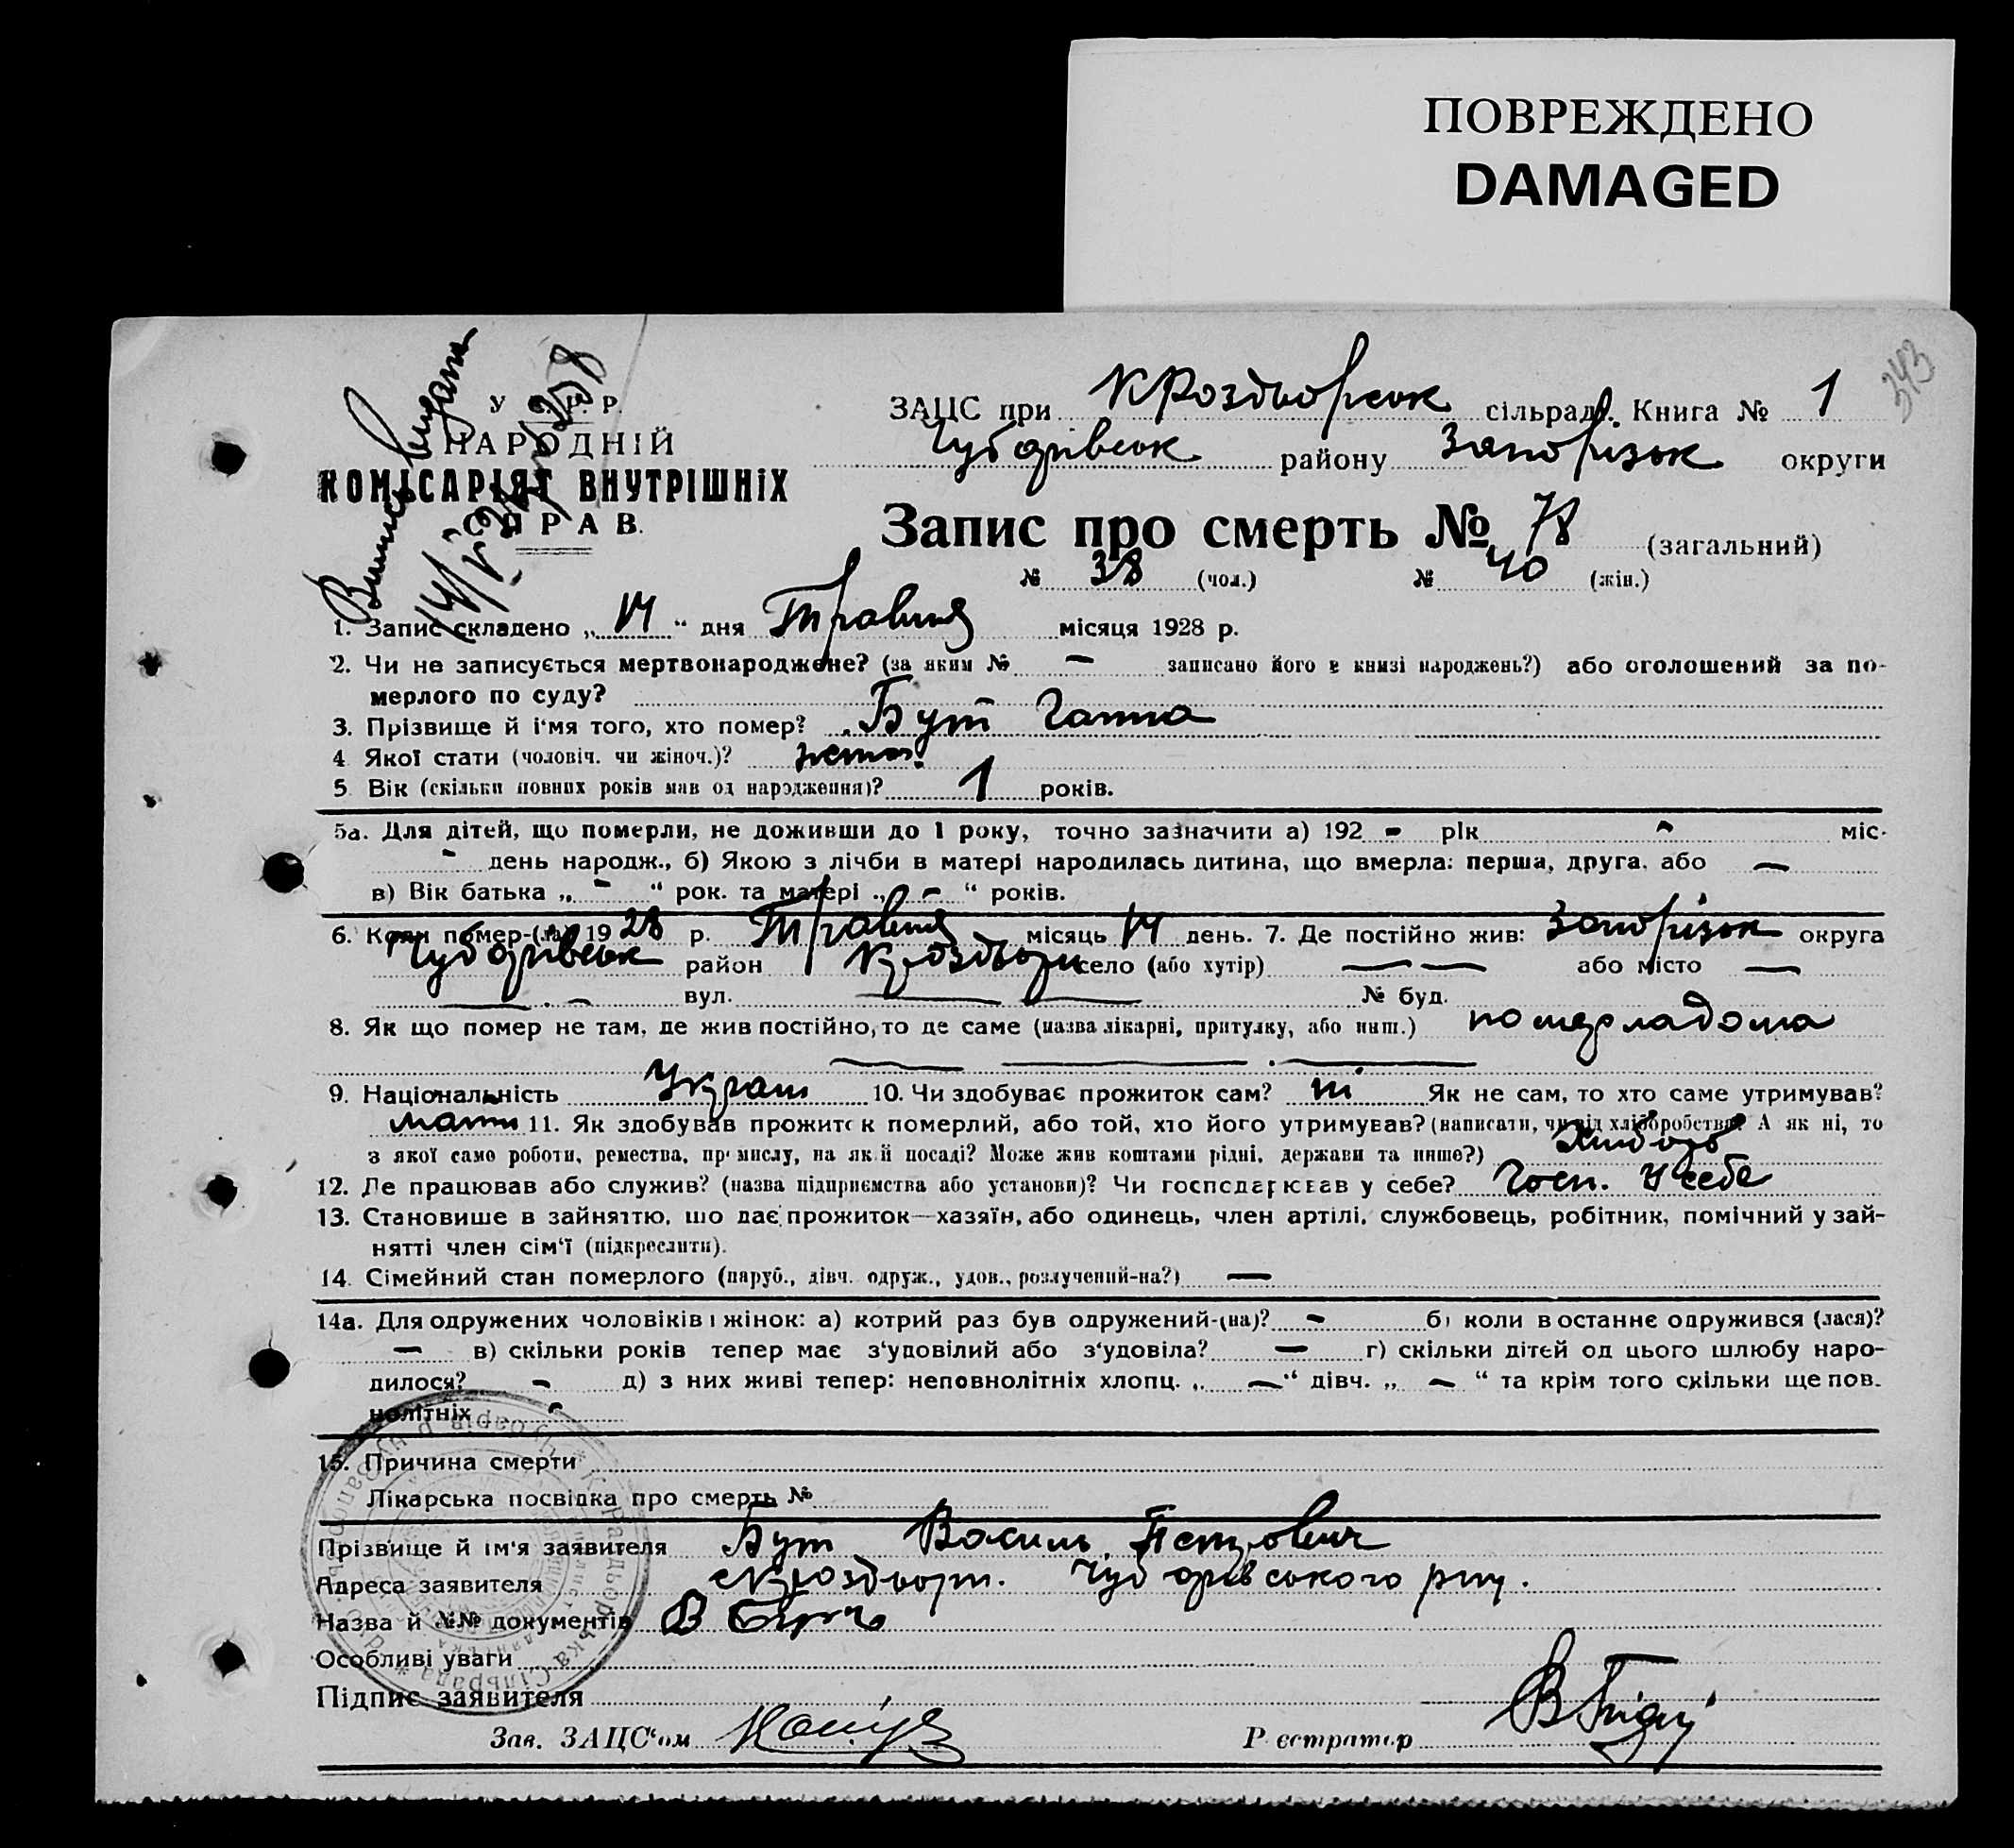 ПОВРЕЖДЕНО
DAMAGED
343
У. С. Р. Р.
НАРОДНІЙ
КОМІСАРІЯТ ВНУТРІШНІХ
СПРАВ.
ЗАЦС при КРоздорськ сільраді. Книга № 1
Чубарівськ району Запорізьк округи
Запис про смерть № 78 (загальний)
№ 38 (чол.) № 40 (жін.)
1. Запис складено „14“ дня Травня місяця 1928 р.
2. Чи не записується мертвонароджене? (за яким № – записано його в книзі народжень?) або оголошений за по-
мерлого по суду?
3. Прізвище й і‘мя того, хто помер? Бут Ганна
4. Якої стати (чоловіч. чи жіноч.)?
5. Вік (скільки повних років мав од народження)? 1 років.
5а. Для дітей, що померли, не доживши до 1 року, точно зазначити а) 192 – рік – міс.
– день народж., б) Якою з лічби в матері народилась дитина, що вмерла: перша, друга, або —
в) Вік батька „ – “ рок. та матері „ – “ років.
6. Коли помер-(ла) 1928 р. Травня місяць 14 день. 7. Де постійно жив: Запорізьк округа
Чубарівськ район Кроздори село (або хутір) — — або місто —
— . – вул. — — № буд.
8. Як що помер не там, де жив постійно, то де саме (назва лікарні, притулку, або инш.) померла дома
9. Національність Украін 10. Чи здобуває прожиток сам? ні Як не сам, то хто саме утримував?
мати 11. Як здобував прожиток померлий, або той, хто його утримував? (написати, чи від хліборобства? А як ні, то
з якої саме роботи, ремества, промислу, на якій посаді? Може жив коштами рідні, держави та инше?) Хлибороб
12. Де працював або служив? (назва підприємства або установи)? Чи господарював у себе? Госп. У себе
13. Становище в зайняттю, що дає прожиток—хазяїн, або одинець, член артілі, службовець, робітник, помічний у зай-
нятті член сім‘ї (підкреслити).
14. Сімейний стан померлого (паруб., дівч. одруж., удов., розлучений-на?) —
14а. Для одружених чоловіків і жінок: а) котрий раз був одружений-(на)? – б) коли востаннє одружився (лася)?
— в) скільки років тепер має з‘удовілий або з‘удовіла? — г) скільки дітей од цього шлюбу наро-
дилося? – д) з них живі тепер: неповнолітніх хлопц. „ — “ дівч. „ — “ та крім того скільки ще пов-
нолітніх –
15. Причина смерти
Лікарська посвідка про смерть №
Прізвище й ім‘я заявителя Бут Василь Петрович
Адреса заявителя Чубарівського р-ну.
Назва й №№ документів
Особливі уваги
Підпис заявителя
Зав. ЗАЦС‘ом
Реєстратор